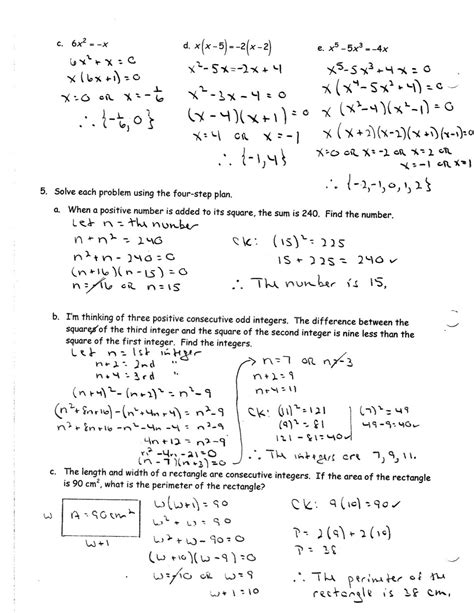 c. 6x² = -x
6x² + x = 0
x(6x+1) = 0
x = 0 OR x = -1/6
∴ {-1/6, 0}
d. x(x - 5) = -2(x - 2)
x² - 5x = -2x + 4
x² - 3x - 4 = 0
(x - 4)(x + 1) = 0
x = 4 OR x = -1
∴ {-1, 4}
e. x⁵ - 5x³ = -4x
x⁵ - 5x³ + 4x = 0
x(x⁴ - 5x² + 4) = 0
x(x² - 4)(x² - 1) = 0
x(x+2)(x-2)(x+1)(x-1) = 0
x = 0 OR x = -2 OR x = 2
OR x = -1 OR x = 1
∴ {-2, -1, 0, 1, 2}
5. Solve each problem using the four-step plan.
a. When a positive number is added to its square, the sum is 240. Find the number.
Let n = the number
n + n² = 240
n² + n - 240 = 0
(n+16)(n-15) = 0
n = -16 OR n = 15
CK: (15)² = 225
15 + 225 = 240 ✓
∴ The number is 15.
b. I'm thinking of three positive consecutive odd integers. The difference between the
square of the third integer and the square of the second integer is nine less than the
square of the first integer. Find the integers.
Let n = 1st integer
n+2 = 2nd "
n+4 = 3rd "
(n+4)² - (n+2)² = n² - 9
(n²+8n+16) - (n²+4n+4) = n² - 9
n² + 8n + 16 - n² - 4n - 4 = n² - 9
4n + 12 = n² - 9
n² - 4n - 21 = 0
(n-7)(n+3) = 0
n = 7 OR n = -3
n+2 = 9
n+4 = 11
CK: (11)² = 121
(9)² = 81
121 - 81 = 40 ✓
(7)² = 49
49 - 9 = 40 ✓
∴ The integers are 7, 9, 11.
c. The length and width of a rectangle are consecutive integers. If the area of the rectangle
is 90 cm², what is the perimeter of the rectangle?
w
A = 90 cm²
w+1
w(w+1) = 90
w² + w = 90
w² + w - 90 = 0
(w+10)(w-9) = 0
w = -10 OR w = 9
w+1 = 10
CK: 9(10) = 90 ✓
P = 2(9) + 2(10)
P = 38
∴ The perimeter of the
rectangle is 38 cm.